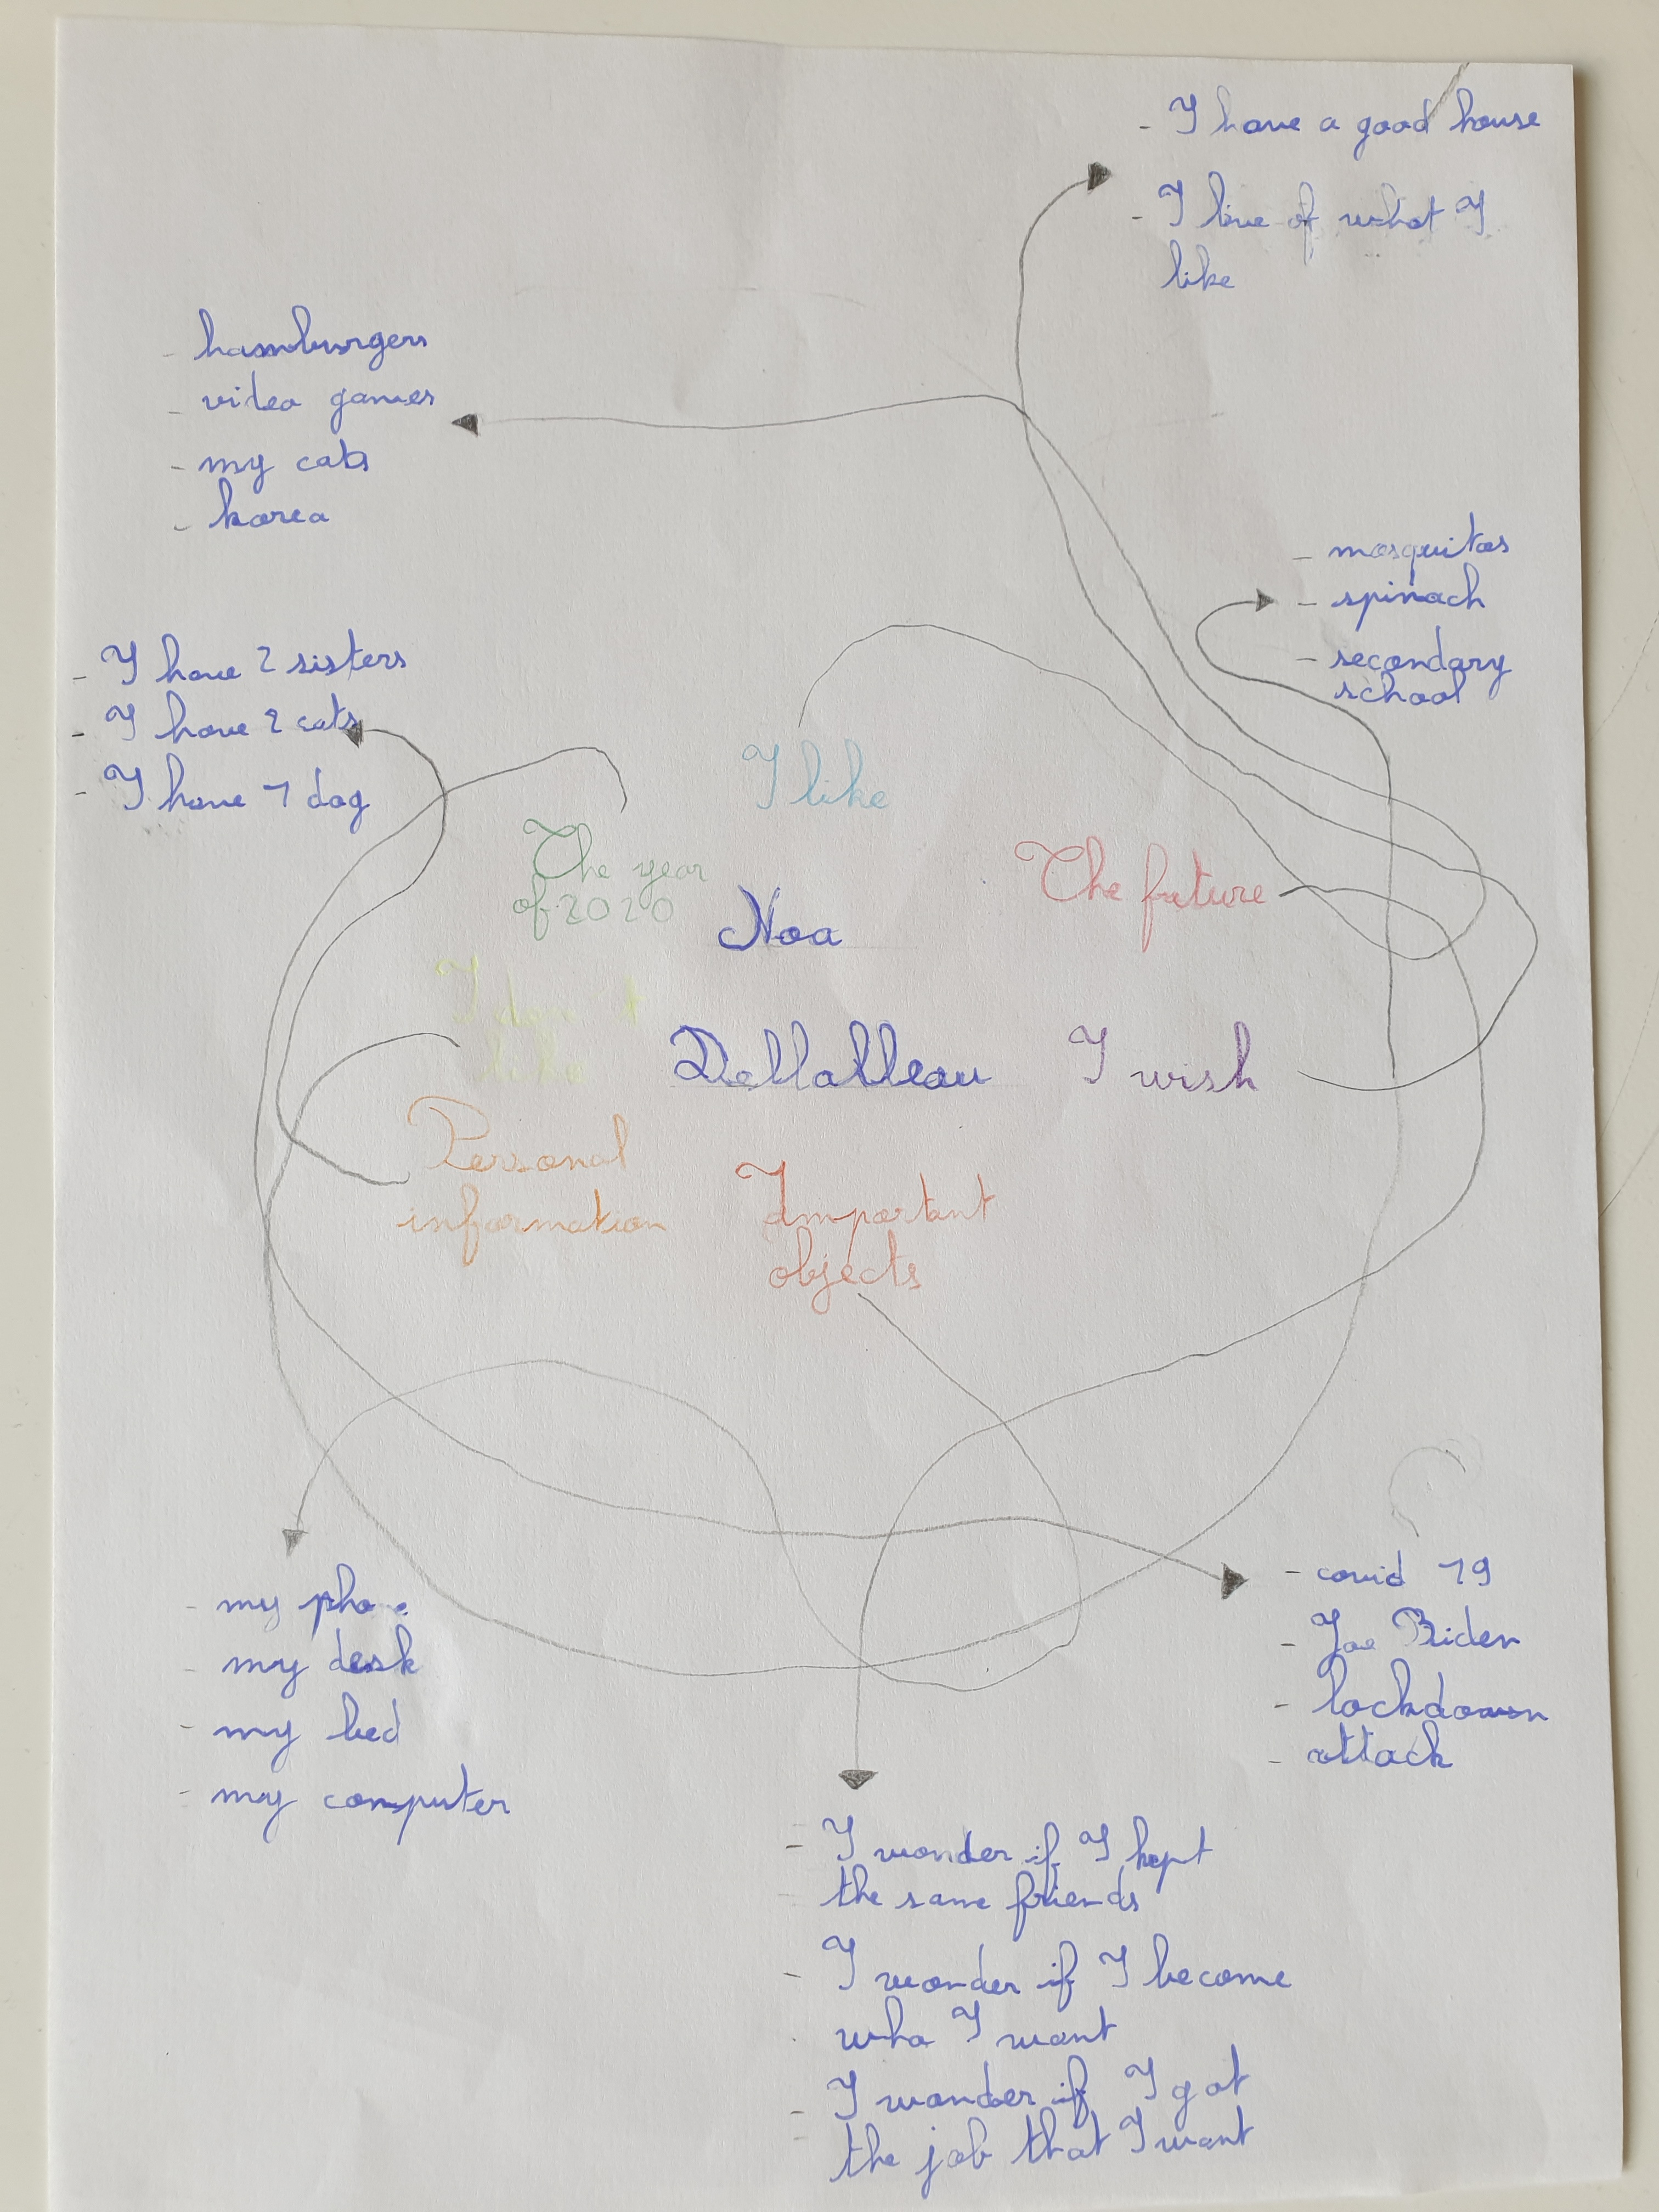 - I have a good house
- I live of what I
like
- hamburgers
- video games
- my cats
- korea
- mosquitos
- spinach
- secondary
school
- I have 2 sisters
- I have 2 cats
- I have 1 dog
I like
The year
of 2020
The future
Noa
I don't
like
Dellalleau
I wish
Personal
information
Important
objects
- my phone
- my desk
- my bed
- my computer
- covid 19
- Joe Biden
- lockdown
- attack
- I wonder if I kept
the same friends
- I wonder if I become
who I want
- I wonder if I got
the job that I want